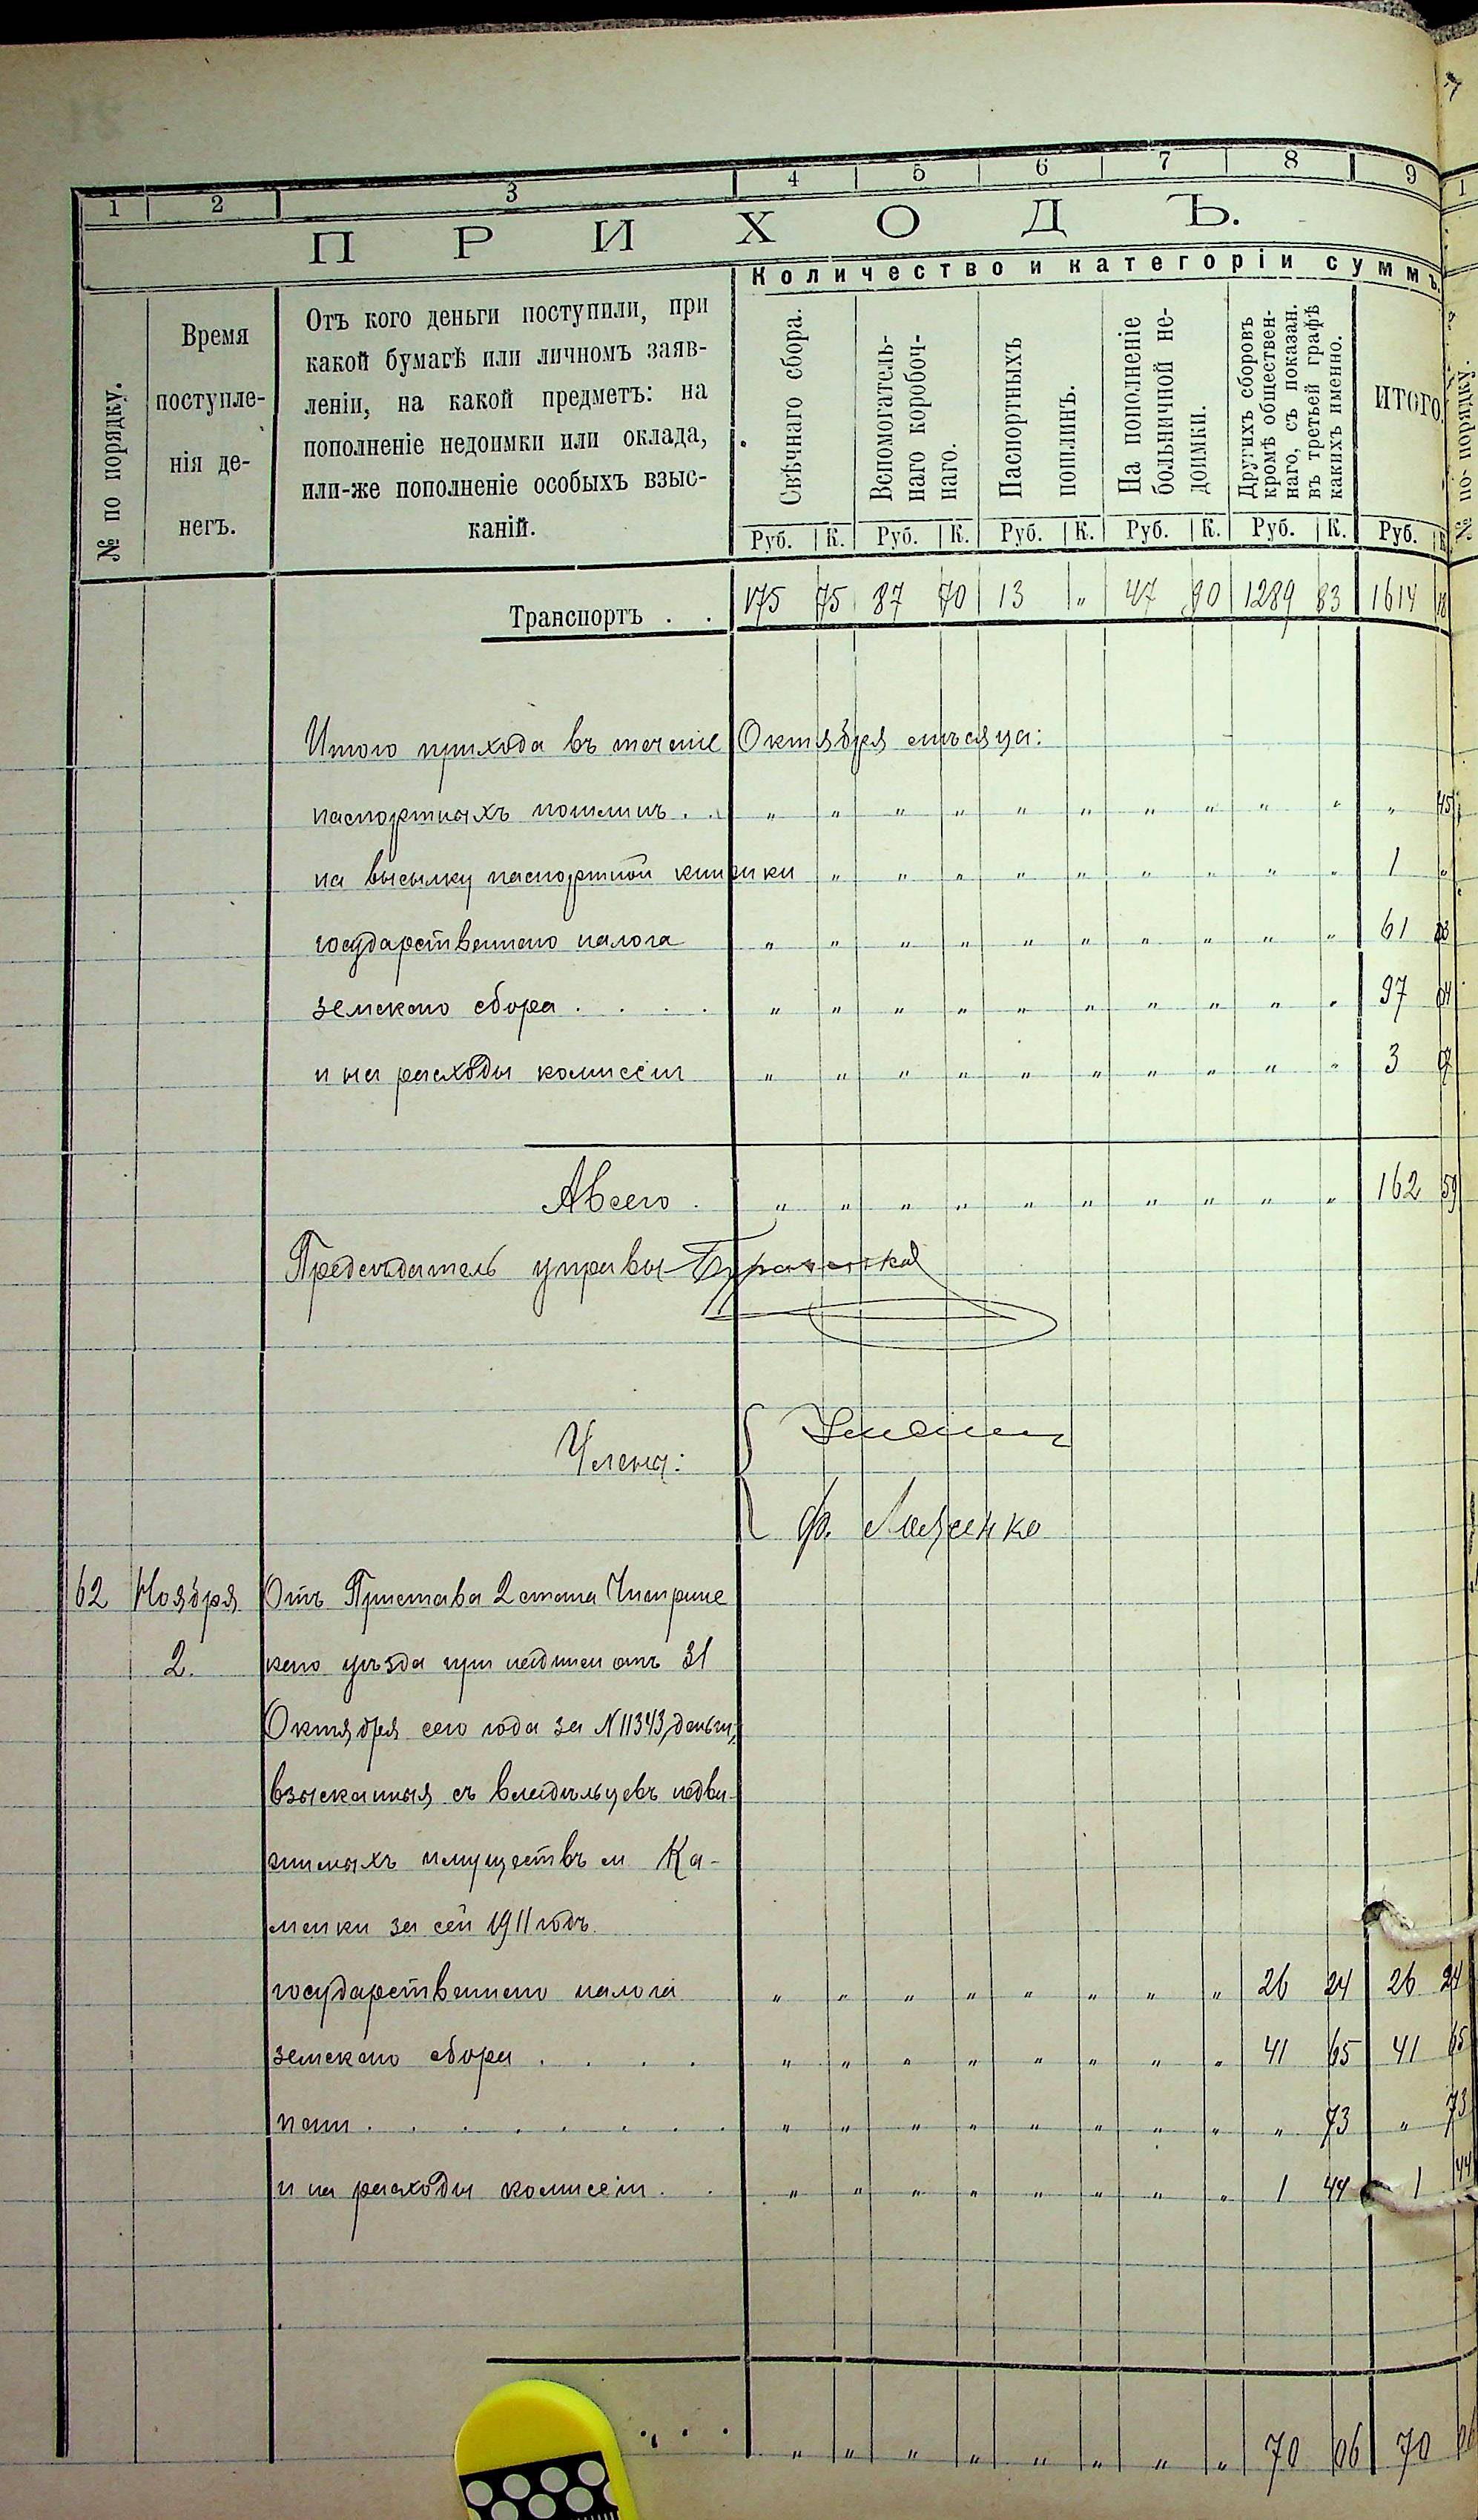 1 2 3 4 5 6 7 8 9
ПРИХОДЪ.
Количество и категоріи суммъ.
№ по порядку.
Время поступле-
нія де-
негъ.
Отъ кого деньги поступили, при
какой бумагѣ или личномъ заяв-
леніи, на какой предметъ: на
пополненіе недоимки или оклада,
или-же пополненіе особыхъ взыс-
каній.
Свѣчнаго сбора.
Вспомогатель-
наго коробоч-
наго.
Паспортныхъ
пошлинъ.
На пополненіе
больничной не-
доимки.
Другихъ сборовъ
кромѣ обществен-
наго, съ показан.
въ третьей графѣ
какихъ именно.
ИТОГО.
Руб. К. Руб. К. Руб. К. Руб. К. Руб. К. Руб. К.
Транспортъ . . 175 75 87 70 13 „ 47 90 1289 83 1614 18
Итого прихода въ теченіе Октября мѣсяца:
паспортныхъ пошлинъ . . „ „ „ „ „ „ „ „ „ „ „ 45
на высылку паспортной книжки „ „ „ „ „ „ „ „ „ 1 „
государственнаго налога „ „ „ „ „ „ „ „ „ „ 61 03
земскаго сбора . . . . „ „ „ „ „ „ „ „ „ „ 97 04
и на расходы комиссіи „ „ „ „ „ „ „ „ „ „ 3 07
А всего . „ „ „ „ „ „ „ „ „ „ 162 59
Предсѣдатель управы
Члены:
Ф.
62 Ноября Отъ Пристава 2 стана Чигирин
2. скаго уѣзда при надписи отъ 31
Октября сего года за N 11343, деньги,
взысканныя съ владѣльцевъ недви-
жимыхъ имуществъ м Ка-
менки за сей 1911 годъ.
государственнаго налога „ „ „ „ „ „ „ „ 26 24 26 24
земскаго сбора . . . . „ „ „ „ „ „ „ „ 41 65 41 65
пени . . . . . . . „ „ „ „ „ „ „ „ „ 73 „ 73
и на расходы комиссіи . . „ „ „ „ „ „ „ „ 1 44 1 44
. . . „ „ „ „ „ „ „ „ 70 06 70 06
№ по порядку.
1